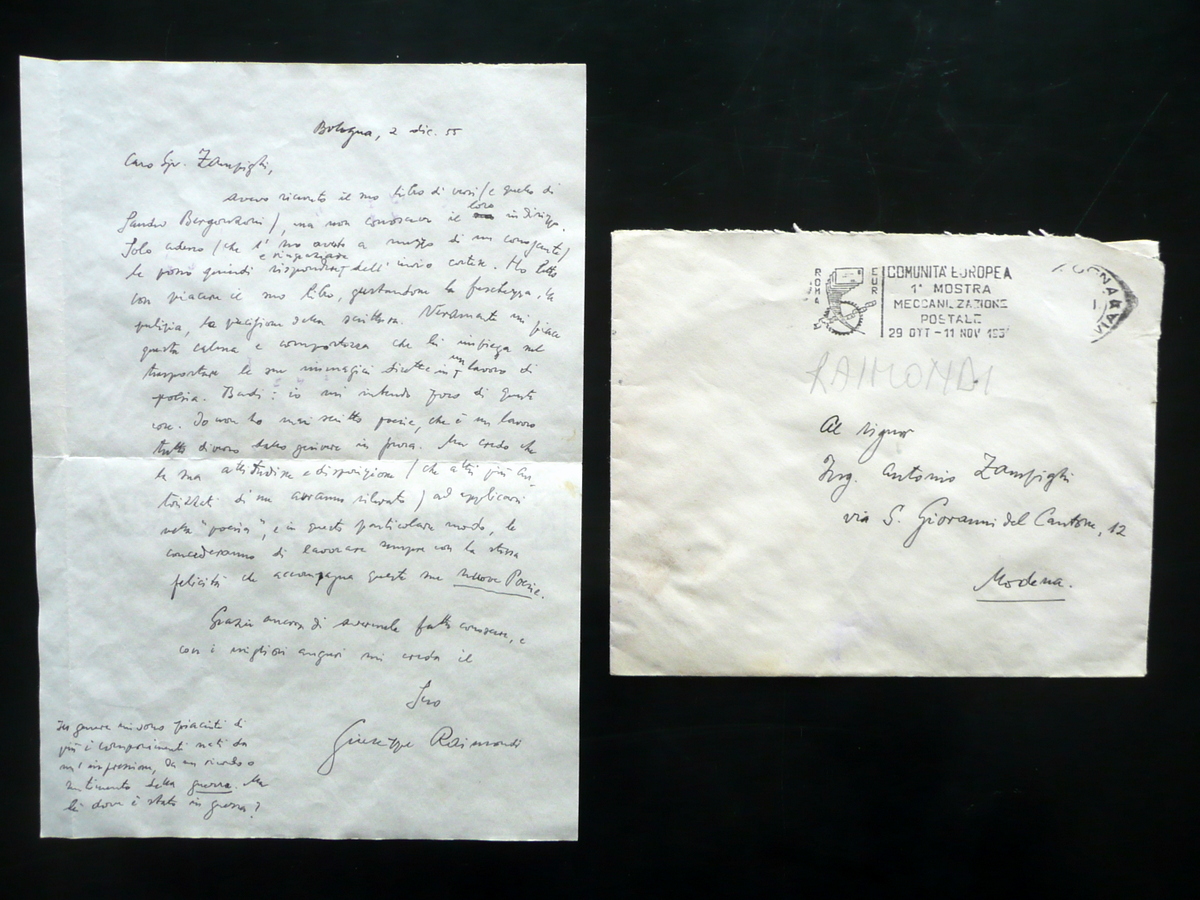 Bologna, 2 dic. 55
Caro Sgr. Zampighi,
avevo ricevuto il suo libro di versi (e quello di
Sandro Bergonzoni), ma non conoscevo il loro indirizzo.
Solo adesso (che l'ho avuto a mezzo di un conoscente)
le posso quindi rispondere e ringraziare dell'invio cortese. Ho letto
con piacere il suo libro, gustandone la freschezza, la
pulizia, la precisione della scrittura. Veramente mi piace
questa calma e compostezza che lei impiega nel
trasportare le sue immagini dirette in un lavoro di
poesia. Badi: io mi intendo poco di queste
cose. Io non ho mai scritto poesie, che è un lavoro
tutto diverso dallo scrivere in prosa. Ma credo che
la sua attitudine e disposizione (che altri più au-
torizzati di me avranno rilevato) ad applicarsi
nella "poesia", e in questo particolare modo, le
concederanno di lavorare sempre con la stessa
felicità che accompagna queste sue nuove Poesie.
Grazie ancora di avermele fatte conoscere, e
con i migliori auguri mi creda il
Suo
Giuseppe Raimondi
In genere mi sono piaciuti di
più i componimenti nati da
un'impressione, da un ricordo o
sentimento della guerra. Ma
lei dove è stato in guerra?
ROMA
EUR
COMUNITA' EUROPEA
1ª MOSTRA
MECCANIZZAZIONE
POSTALE
29 OTT - 11 NOV 195
RAIMONDI
Al signor
Ing. Antonio Zampighi
via S. Giovanni del Cantone, 12
Modena.